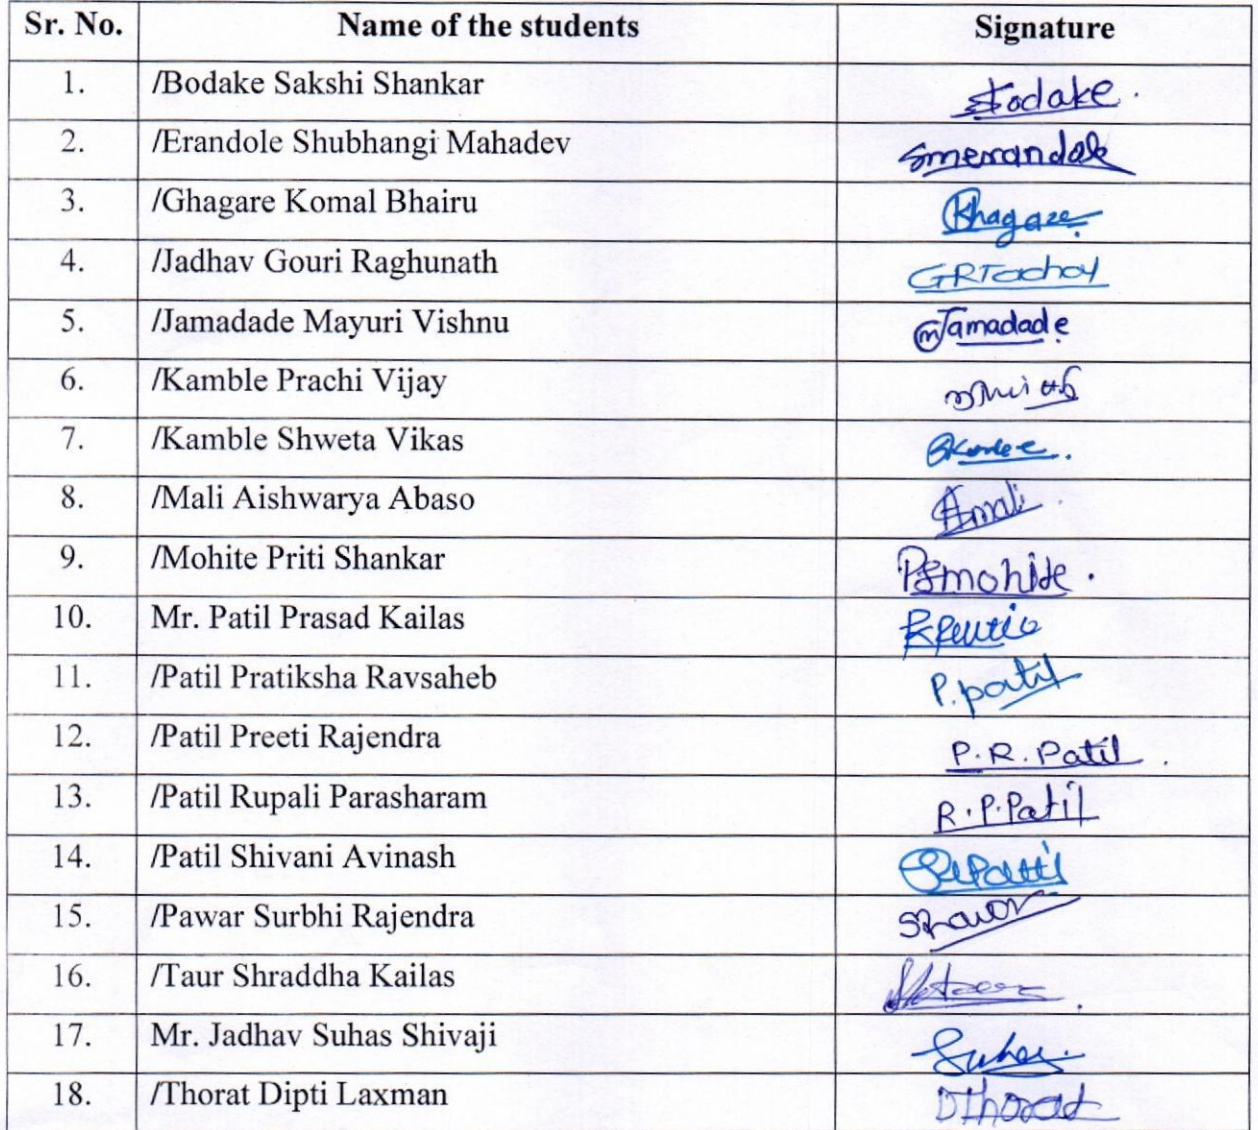 Sr. No. Name of the students Signature
1. /Bodake Sakshi Shankar
2. /Erandole Shubhangi Mahadev Smerandole
3. /Ghagare Komal Bhairu
4. /Jadhav Gouri Raghunath
5. /Jamadade Mayuri Vishnu m Jamadade
6. /Kamble Prachi Vijay
7. /Kamble Shweta Vikas
8. /Mali Aishwarya Abaso Amali
9. /Mohite Priti Shankar PSmohite.
10. Mr. Patil Prasad Kailas
11. /Patil Pratiksha Ravsaheb P. patil
12. /Patil Preeti Rajendra P. R. Patil.
13. /Patil Rupali Parasharam R.P.Patil
14. /Patil Shivani Avinash
15. /Pawar Surbhi Rajendra
16. /Taur Shraddha Kailas
17. Mr. Jadhav Suhas Shivaji Suhas.
18. /Thorat Dipti Laxman DThorat